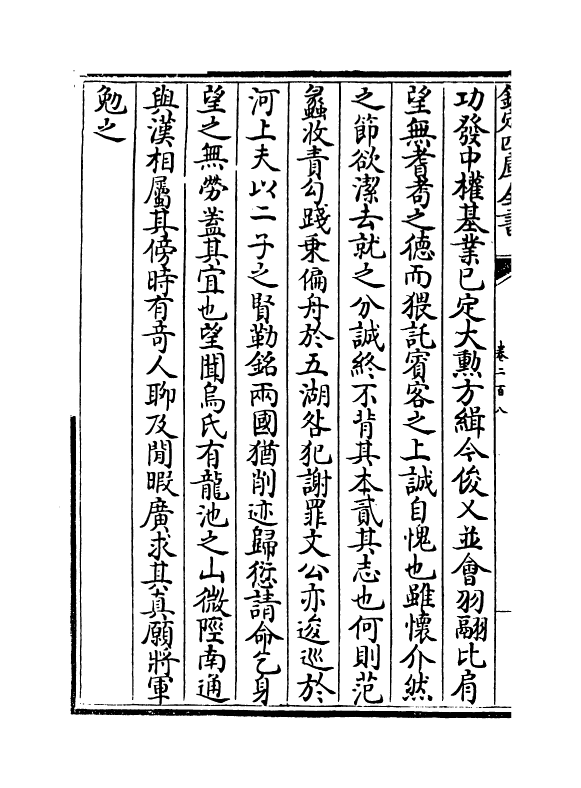 欽定四庫全書
卷二百八
功發中權基業已定大勲方緝今俊乂並㑹羽翮比肩
望無耆耈之德而猥託賓客之上誠自愧也雖懷介然
之節欲潔去就之分誠終不背其本貳其志也何則范
蠡收責勾踐乗偏舟於五湖咎犯謝罪文公亦逡巡於
河上夫以二子之賢勒銘兩國猶削迹歸愆請命乞身
望之無勞葢其宜也望聞烏氏有龍池之山微陘南通
與漢相屬其傍時有竒人聊及閒暇廣求其真願將軍
勉之